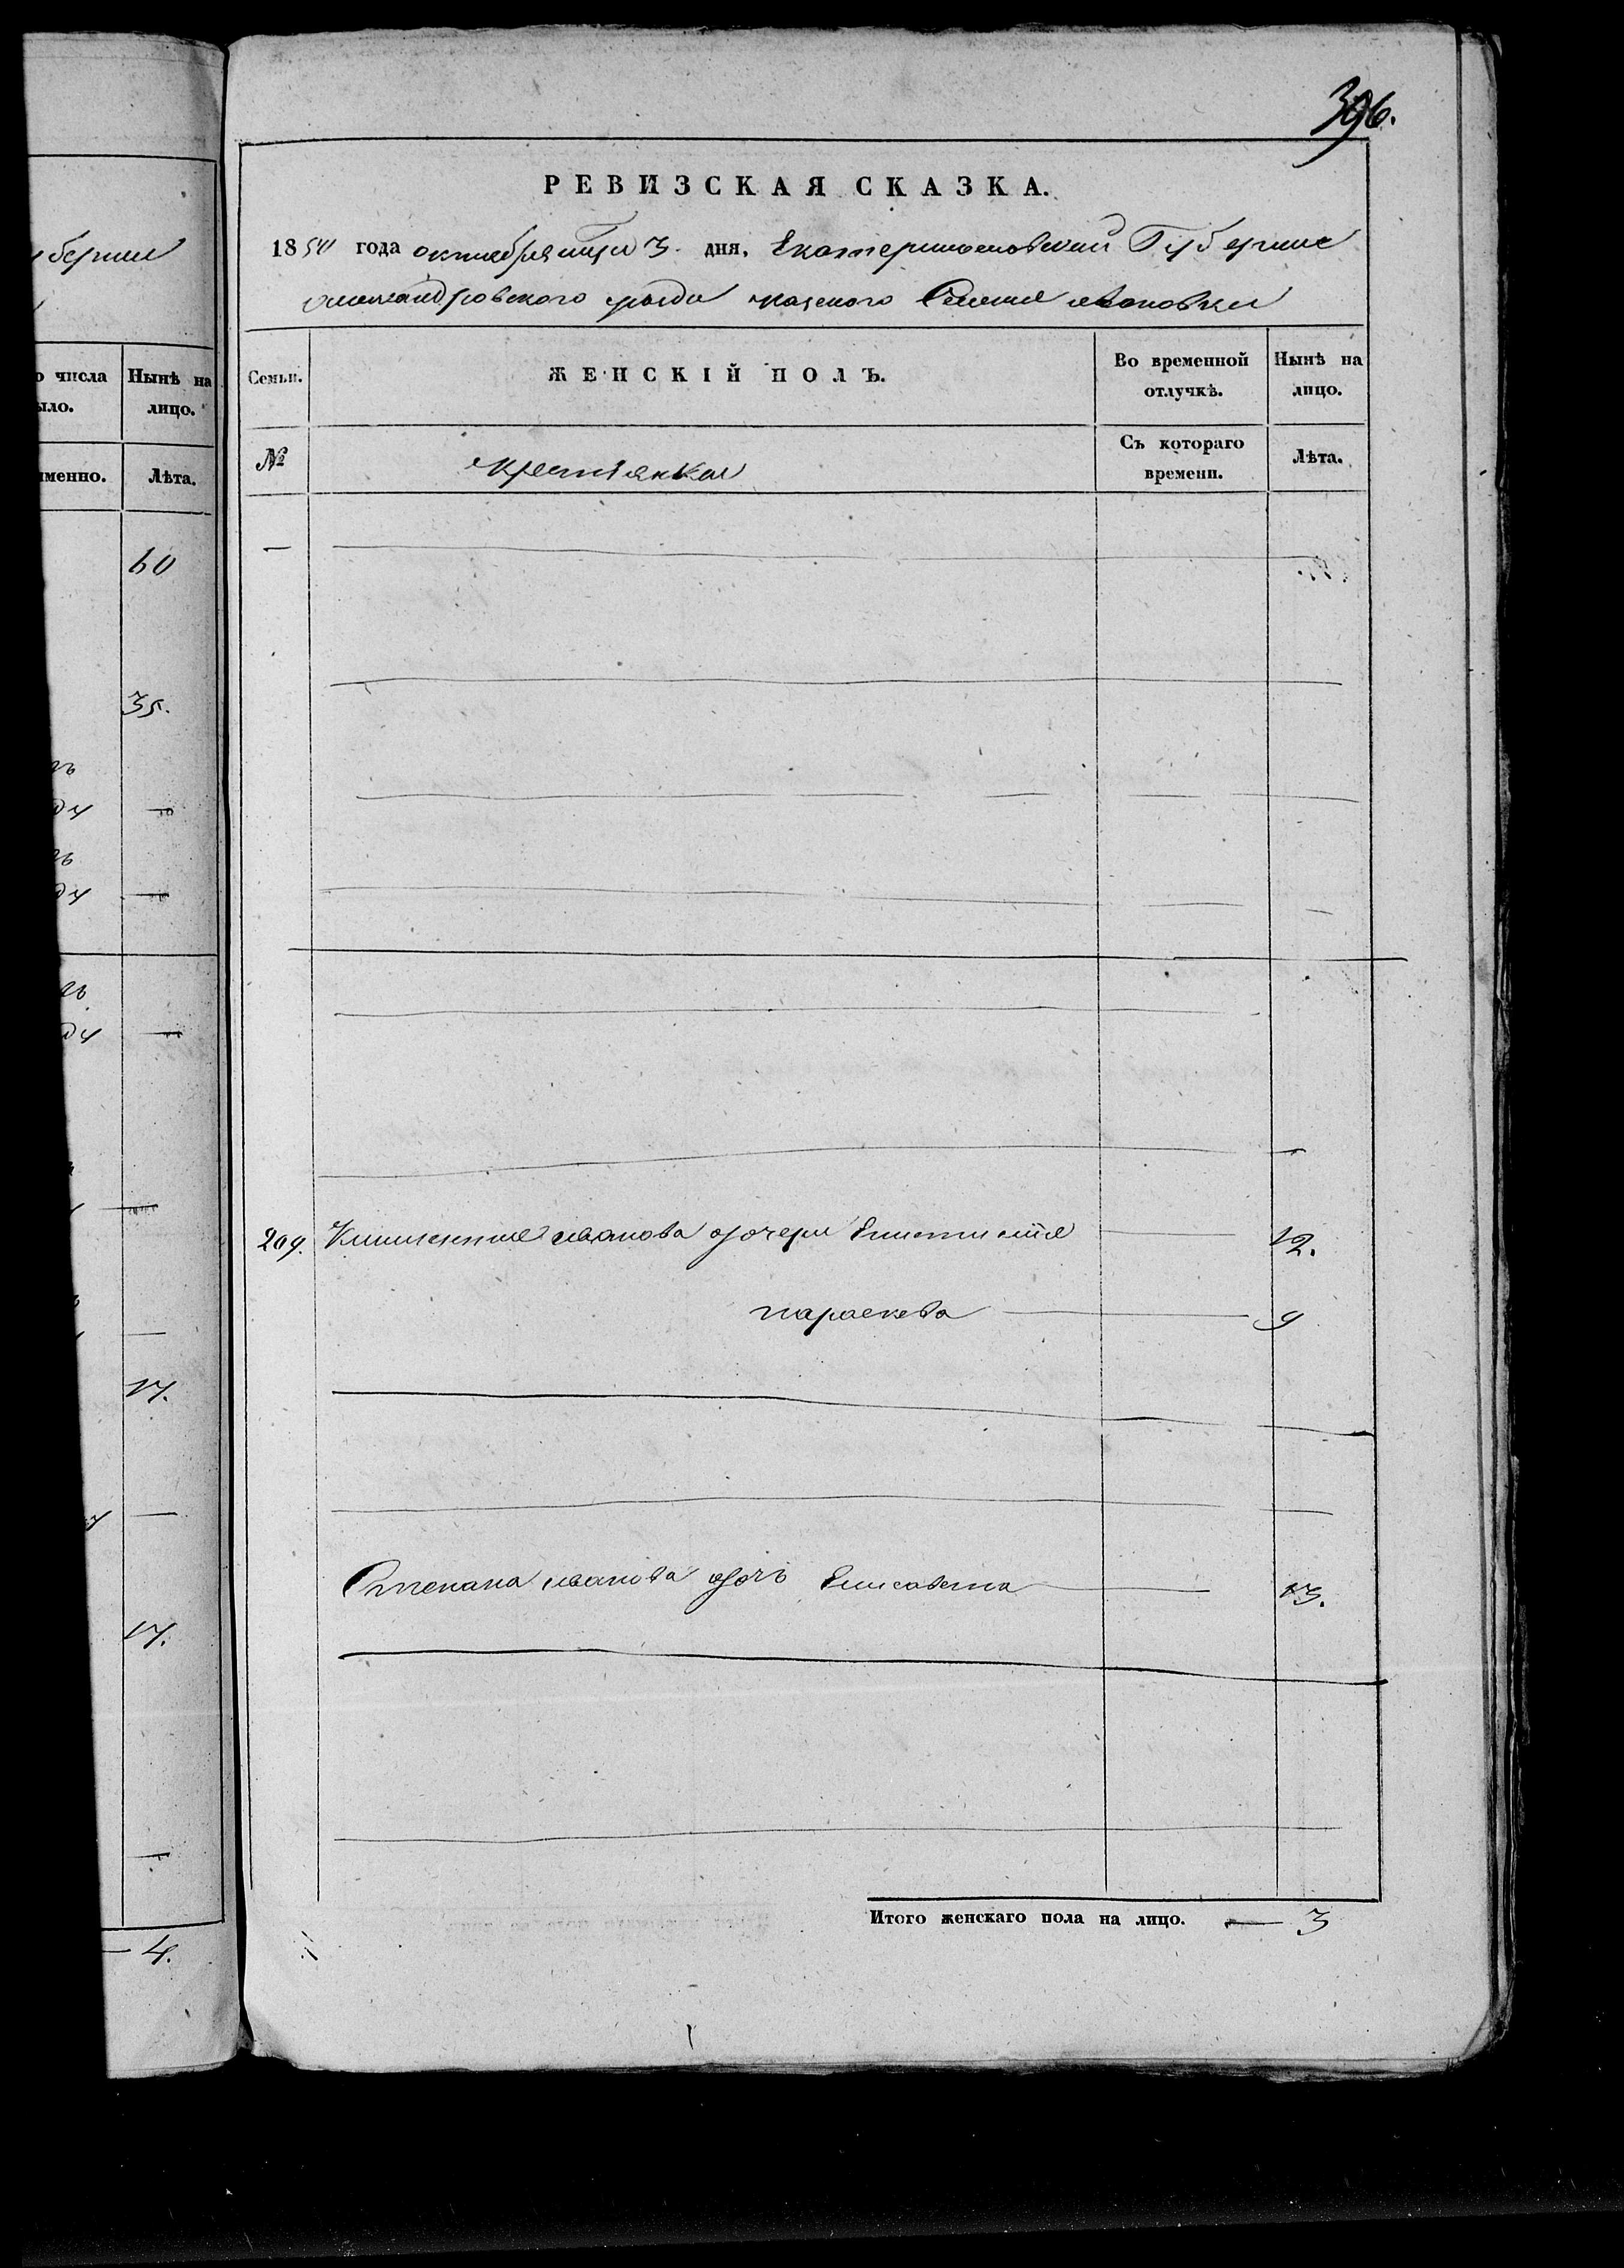 убернии
о числа Нынѣ на
ыло. лицо.
именно. Лѣта.
60
35.
17.
17.
4.
396.
РЕВИЗСКАЯ СКАЗКА.
1850 года октября мца 3 дня, Екатеринославской Губернии
александровского уезда казеного Селения ивановки
Семьи. ЖЕНСКІЙ ПОЛЪ. Во временной отлучкѣ. Нынѣ на лицо.
№ крестьянка Съ котораго времени. Лѣта.
209. иванова дочери 12.
параскева 9
Степана иванова дочь Елисавета 13.
Итого женскаго пола на лицо. 3